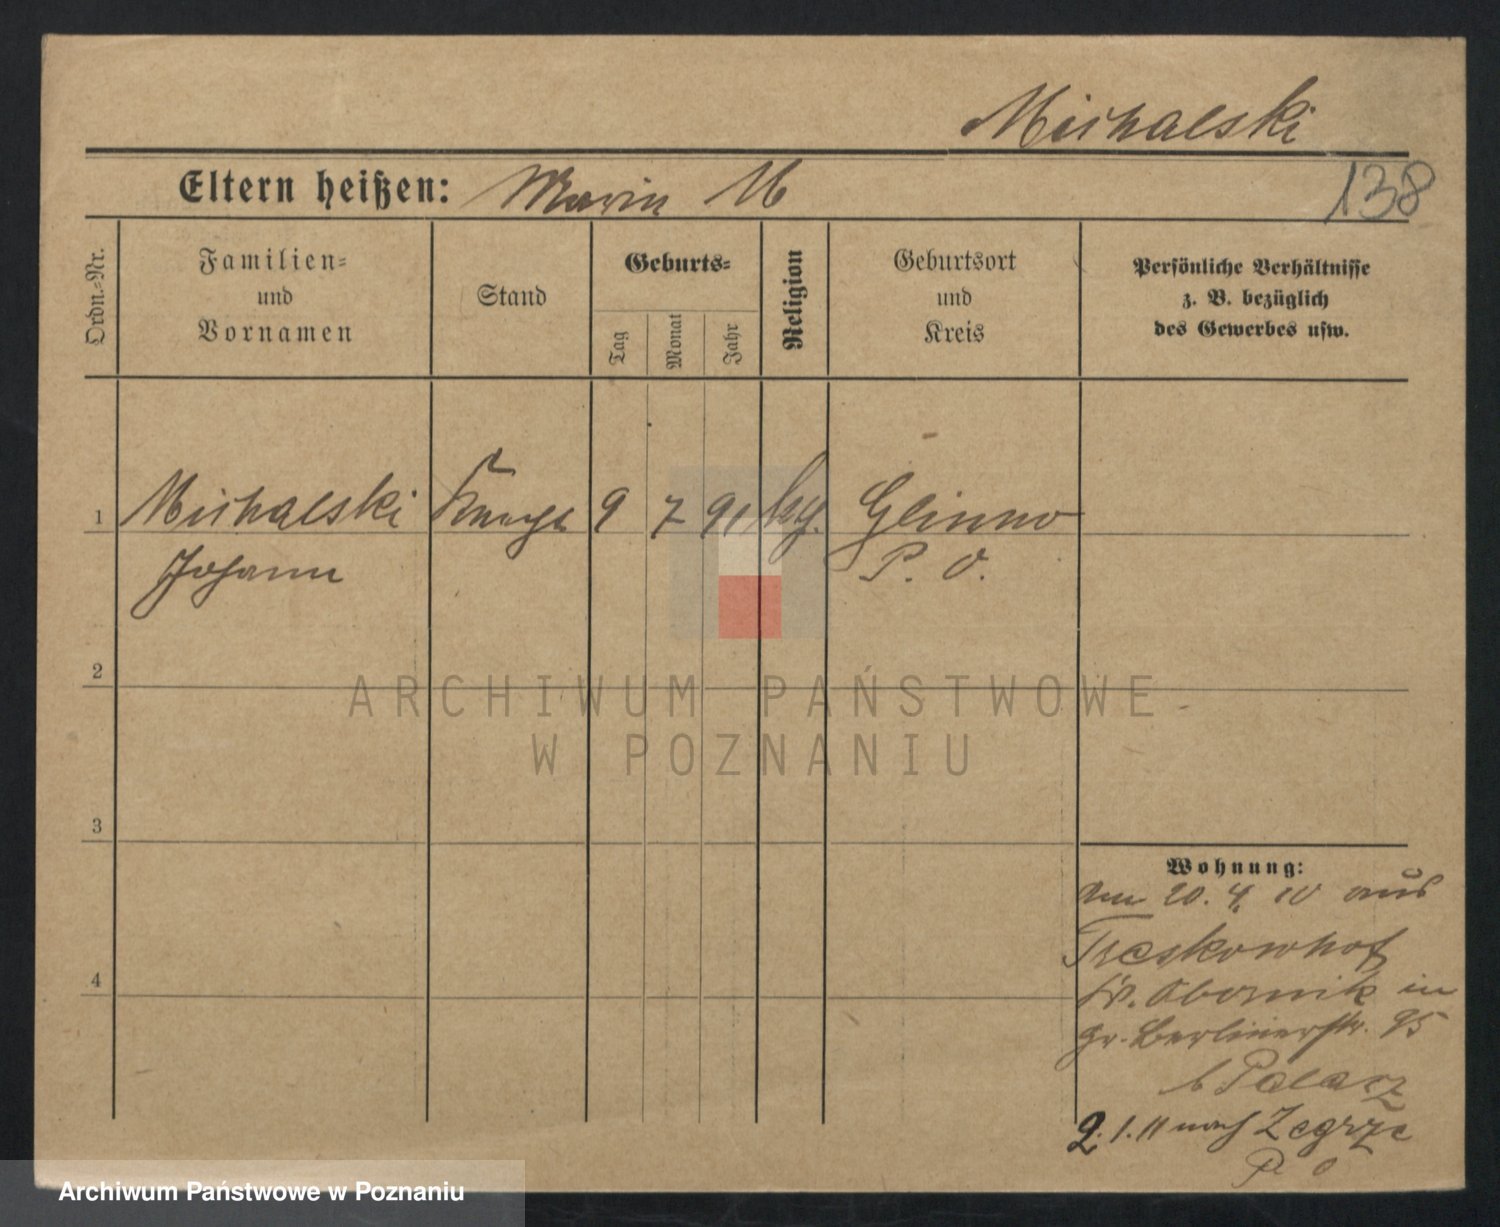 Michalski
Eltern heißen: Maria M
138
Ordn.-Nr.
Familien- und Vornamen
Stand
Geburts-
Tag
Monat
Jahr
Religion
Geburtsort und Kreis
Persönliche Verhältnisse
z. B. bezüglich
des Gewerbes usw.
1 Michalski Knecht 9 7 91 kg. Glinno
Johann P. O.
2
3
4
Wohnung:
Am 20. 4. 10 aus
Treskowhof
Kr. Obornik in
Gr. Berlinerstr. 95
b Palacz
2. 1. 11 nach Zegrze
P. O
ARCHIWUM PAŃSTWOWE
W POZNANIU
Archiwum Państwowe w Poznaniu